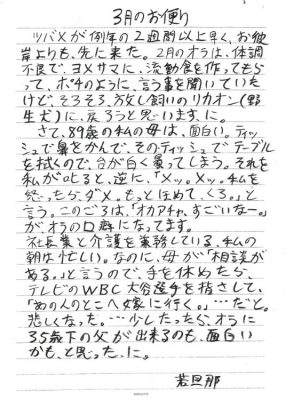 3月のお便り
ツバメが例年の2週間以上早く、お彼
岸よりも、先に来た。2月のオラは、体調
不良で、ヨメサマに、流動食を作ってもら
って、ポチのように、言う事を聞いていた
けど、そろそろ、放し飼いのリカオン(野
生犬)に、戻ろうと思います、に。
さて、89歳の私の母は、面白い。ティッ
シュで鼻をかんで、そのティッシュで、テーブル
を拭くので、台が白く曇ってしまう。それを
私が叱ると、逆に、「メッ。メッ。私を
怒ったら、ダメ。もっとほめて、くろ。」と
言う。このごろは、「オカアチャ、すごいなー。」
がオラの口癖になってます。
社長業と介護を兼務している、私の
朝は忙しい。なのに、母が「相談が
ある。」と言うので、手を休めたら、
テレビのWBC大谷選手を指さして、
「あの人のとこへ嫁に行く。」…だと。
悲しくなった。…少したったら、オラに
35歳下の父が出来るのも、面白い
かも、と思った、に。
若旦那